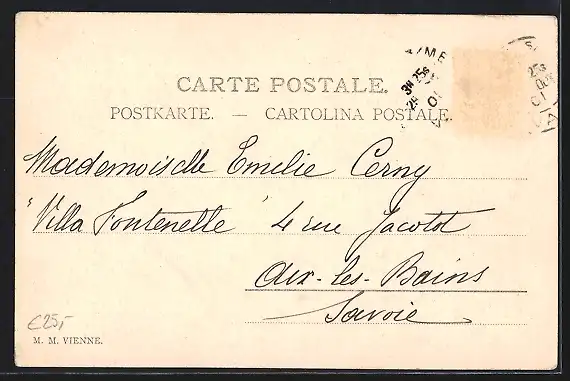 CARTE POSTALE.
POSTKARTE. — CARTOLINA POSTALE.
Mademoiselle Emilie Cerny
"Villa Fontenelle" 4 rue Jacotot
Aix-les-Bains
Savoie
€25,-
M. M. VIENNE.